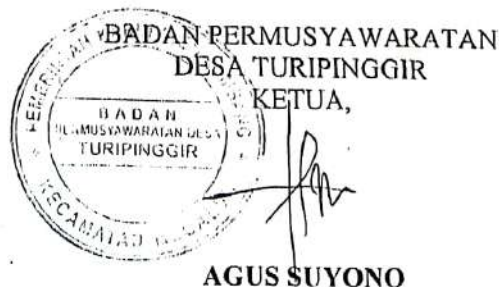 BADAN PERMUSYAWARATAN
DESA TURIPINGGIR
KETUA,
BADAN
PERMUSYAWARATAN DESA
TURIPINGGIR
KECAMATAN
AGUS SUYONO